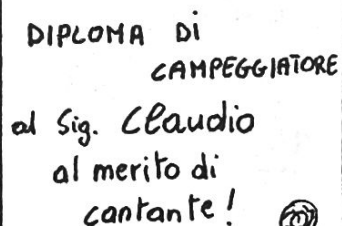 DIPLOMA Di
CAMPEGGIATORE
al Sig. Claudio
al merito di
cantante!